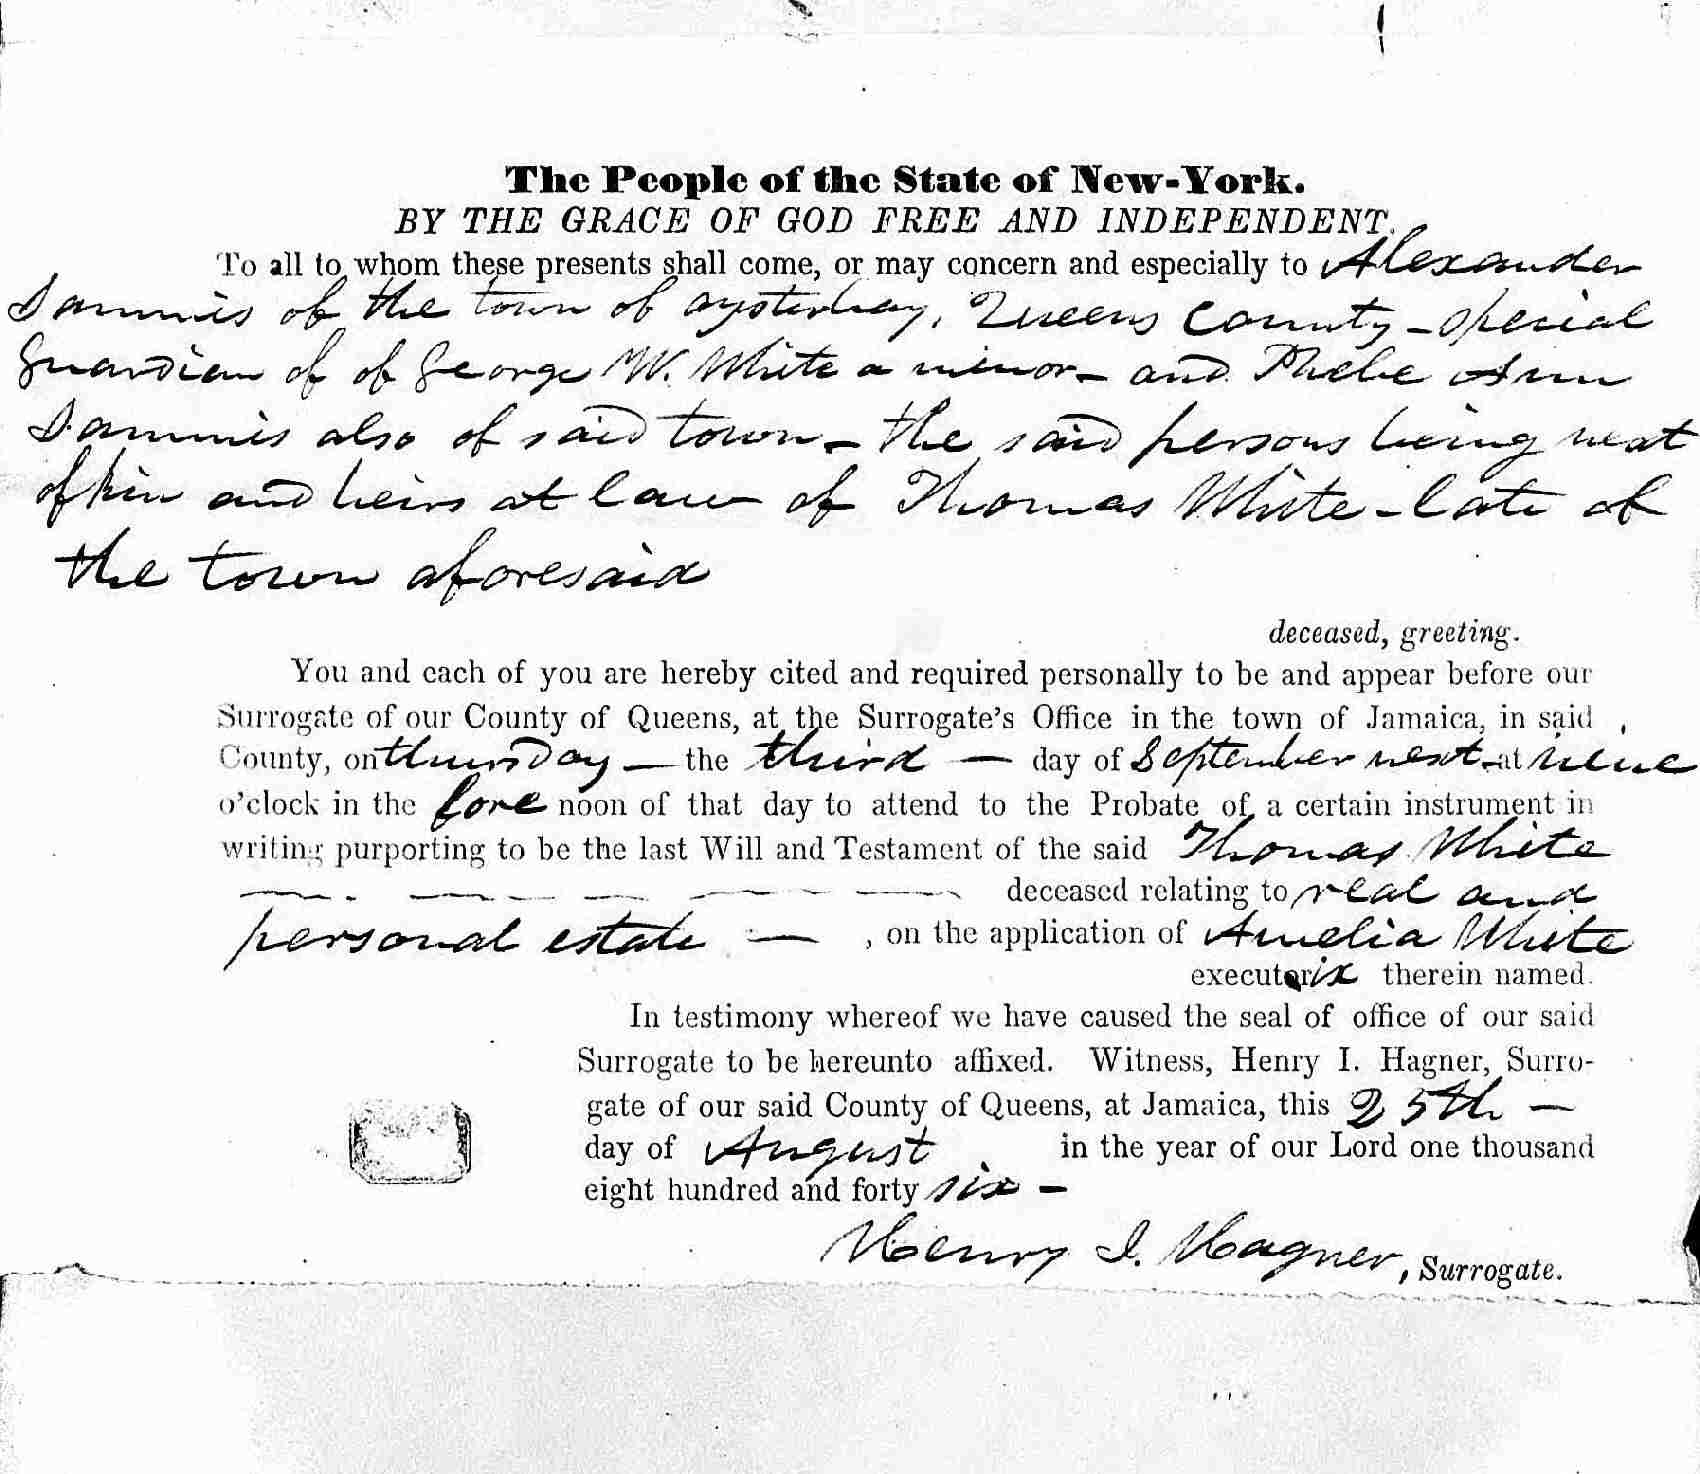 The People of the State of New-York.
BY THE GRACE OF GOD FREE AND INDEPENDENT.
To all to whom these presents shall come, or may concern and especially to Alexander
Sammis of the town of oysterbay, Queens County - Special
Guardian of of George W. White a minor - and Phebe Ann
Sammis also of said town - the said persons being next
of kin and heirs at law of Thomas White - late of
the town aforesaid
deceased, greeting.
You and each of you are hereby cited and required personally to be and appear before our
Surrogate of our County of Queens, at the Surrogate's Office in the town of Jamaica, in said
County, on thursday — the third — day of September next - at nine
o'clock in the fore noon of that day to attend to the Probate of a certain instrument in
writing purporting to be the last Will and Testament of the said Thomas White
deceased relating to real and
personal estate — , on the application of Amelia White
executorix therein named.
In testimony whereof we have caused the seal of office of our said
Surrogate to be hereunto affixed. Witness, Henry I. Hagner, Surro-
gate of our said County of Queens, at Jamaica, this 25th —
day of August in the year of our Lord one thousand
eight hundred and forty six —
Henry I. Hagner, Surrogate.